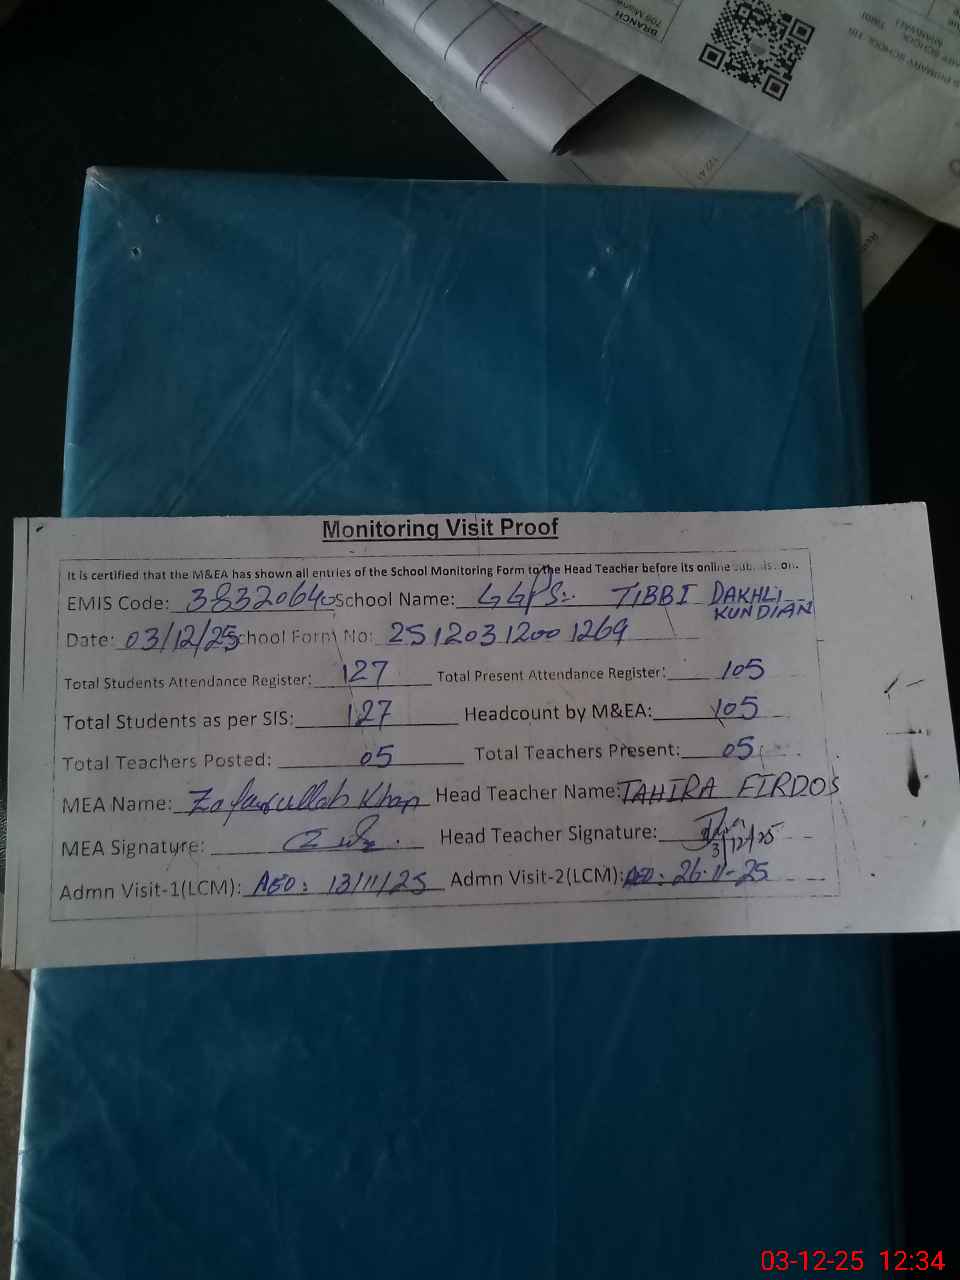 BRANCH
Monitoring Visit Proof
It is certified that the M&EA has shown all entries of the School Monitoring Form to the Head Teacher before its online submission.
EMIS Code: 38320640 School Name: GGPS. TIBBI DAKHLI
KUNDIAN
Date: 03/12/25 School Form No: 2512031200 1269
Total Students Attendance Register: 127 Total Present Attendance Register: 105
Total Students as per SIS: 127 Headcount by M&EA: 105
Total Teachers Posted: 05 Total Teachers Present: 05
MEA Name: Zafarullah Khan Head Teacher Name: TAHIRA FIRDOS
MEA Signature: Head Teacher Signature: 3/12/25
Admn Visit-1(LCM): AEO: 13/11/25 Admn Visit-2(LCM): AEO: 26-11-25
03-12-25 12:34